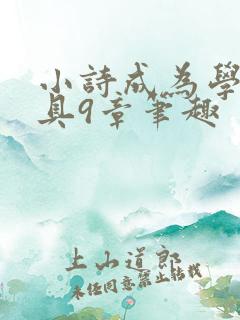 小詩成為學
具9章筆趣
上山道郎
未任同意禁止轉載